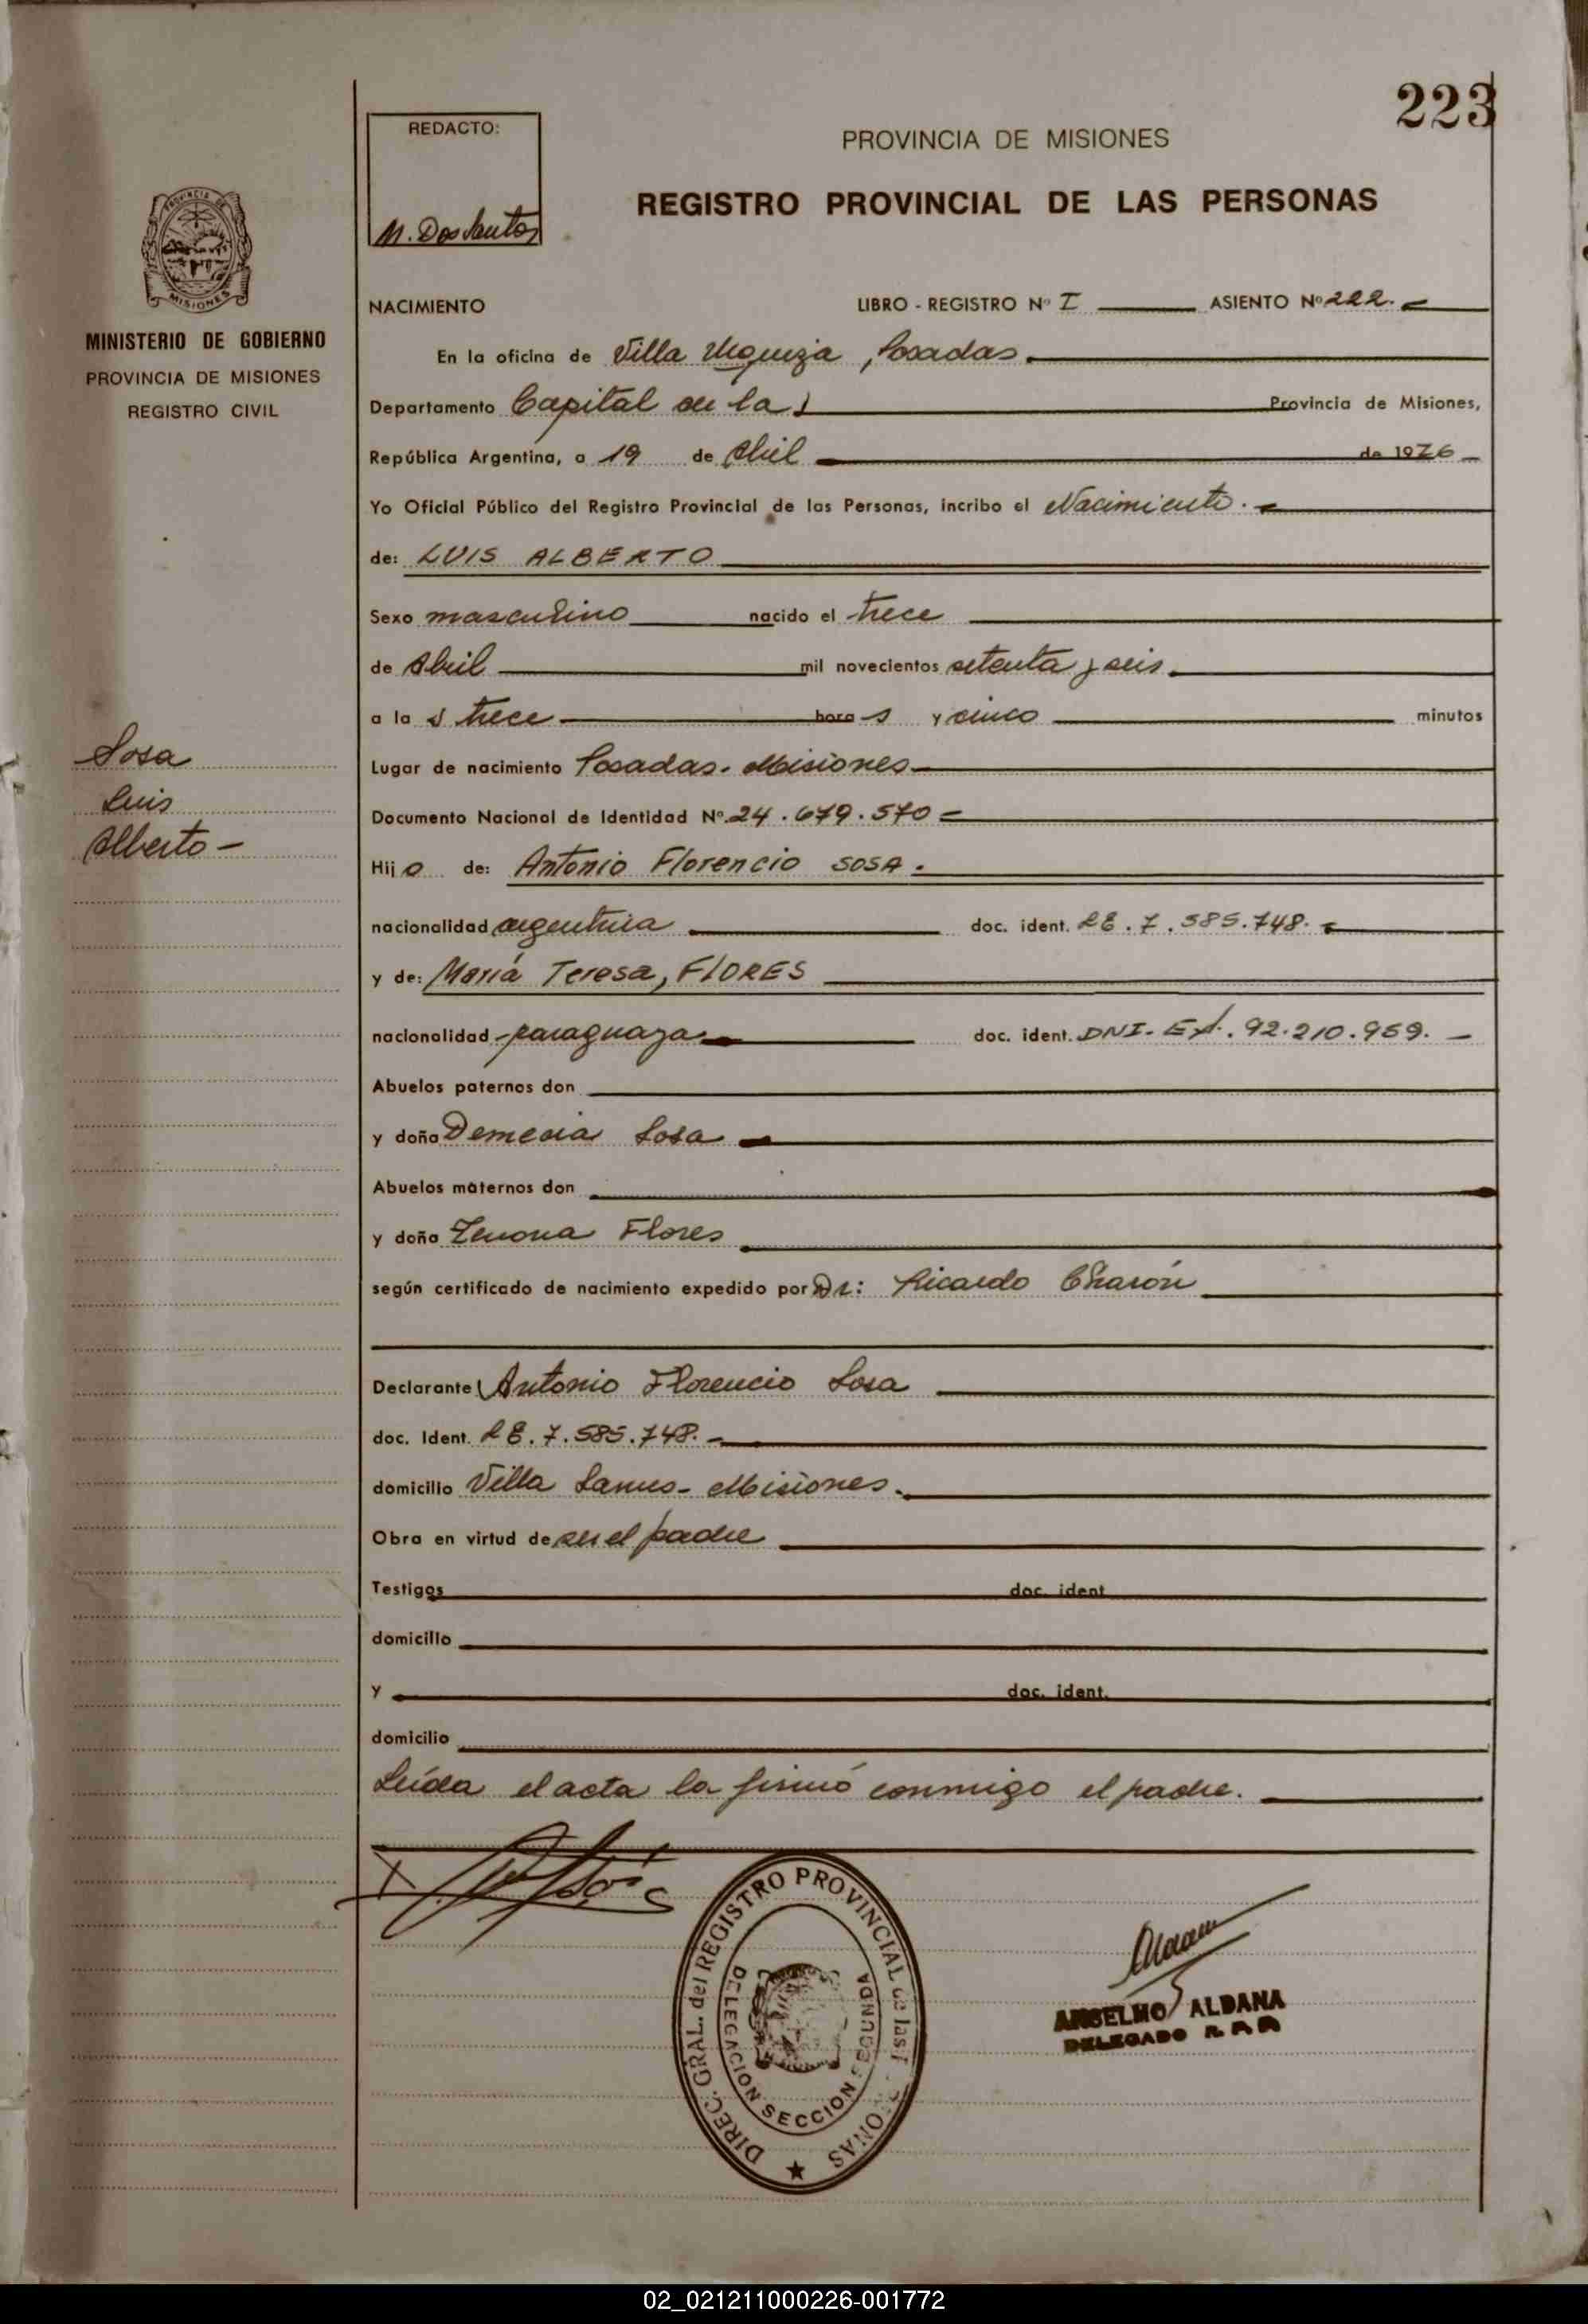 223
REDACTO:
M. Dos Santos
PROVINCIA DE MISIONES
REGISTRO PROVINCIAL DE LAS PERSONAS
PROVINCIA DE
MISIONES
MINISTERIO DE GOBIERNO
PROVINCIA DE MISIONES
REGISTRO CIVIL
NACIMIENTO LIBRO - REGISTRO Nº I ASIENTO Nº 222.
En la oficina de Villa Urquiza, Posadas.
Departamento Capital en la Provincia de Misiones,
República Argentina, a 19 de Abril de 1976
Yo Oficial Público del Registro Provincial de las Personas, incribo el Nacimiento.
de: LUIS ALBERTO
Sexo masculino nacido el trece
de Abril mil novecientos setenta y seis.
a la s trece hora s y cinco minutos
Sosa
Luis
Alberto -
Lugar de nacimiento Posadas. Misiones
Documento Nacional de Identidad Nº 24.679.570
Hij o de: Antonio Florencio SOSA.
nacionalidad argentina doc. ident. LE. 7.585.748.
y de: María Teresa, FLORES
nacionalidad paraguaya doc. ident. DNI. Ex. 92.210.959.
Abuelos paternos don
y doña Demecia Sosa
Abuelos maternos don
y doña Zenona Flores
según certificado de nacimiento expedido por Dr: Ricardo Charón
Declarante Antonio Florencio Sosa
doc. Ident. LE. 7.585.748.
domicilio Villa Lanus - Misiones.
Obra en virtud de ser el padre
Testigos doc. ident
domicilio
y doc. ident.
domicilio
Leída el acta la firmó conmigo el padre.
DIREC. GRAL. del REGISTRO PROVINCIAL de las PERSONAS
DELEGACION SECCION SEGUNDA
ANSELMO ALDANA
DELEGADO
02_021211000226-001772